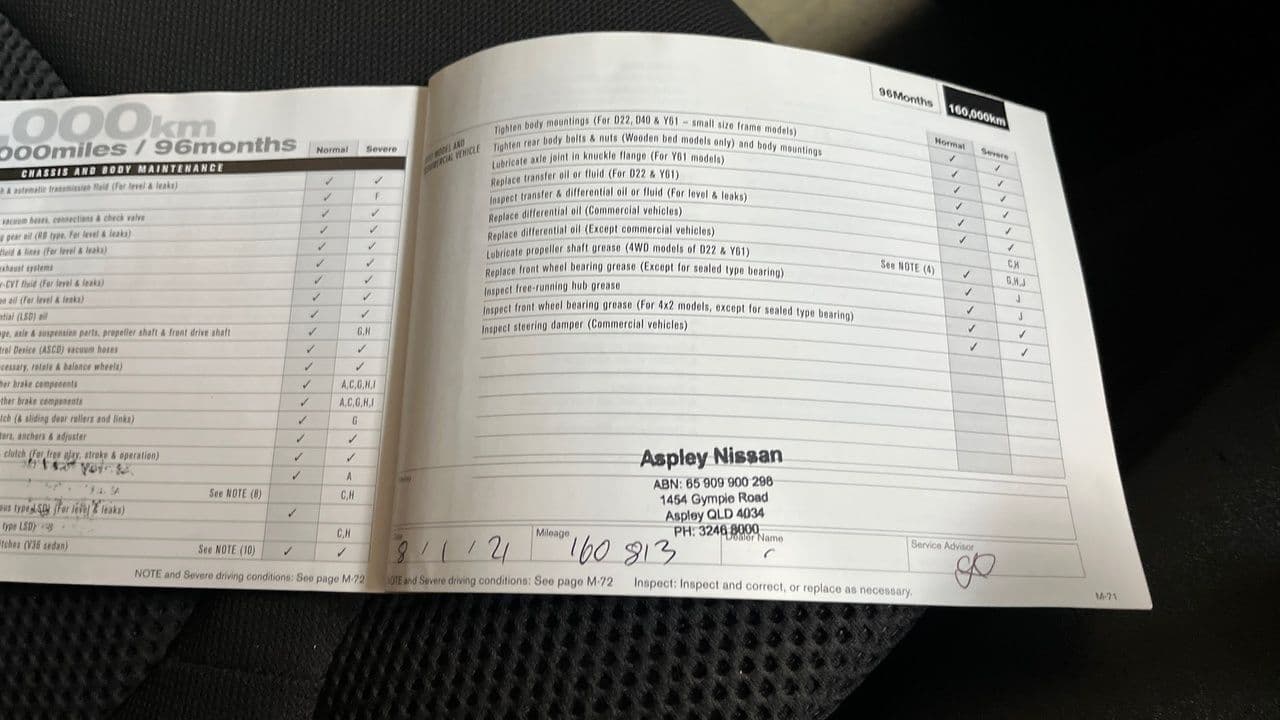 ,000km
000miles / 96months
Normal Severe
CHASSIS AND BODY MAINTENANCE
& automatic transmission fluid (For level & leaks)
✓ ✓
✓ F
vacuum hoses, connections & check valve ✓ ✓
gear oil (RB type, For level & leaks) ✓ ✓
fluid & lines (For level & leaks) ✓ ✓
exhaust systems ✓ ✓
-CVT fluid (For level & leaks) ✓ ✓
oil (For level & leaks) ✓ ✓
(LSD) oil ✓ ✓
axle & suspension parts, propeller shaft & front drive shaft ✓ G,H
Device (ASCD) vacuum hoses ✓ ✓
rotate & balance wheels) ✓ ✓
brake components ✓ A,C,G,H,I
brake components ✓ A,C,G,H,I
(& sliding door rollers and links) ✓ G
anchors & adjuster ✓ ✓
clutch (For free play, stroke & operation) ✓ ✓
✓ A
See NOTE (8) C,H
type LSD) (For level & leaks) ✓
type LSD) C,H
(V36 sedan) See NOTE (10) ✓ ✓
NOTE and Severe driving conditions: See page M-72
96Months 160,000km
Normal Severe
MODEL AND
COMMERCIAL VEHICLE
Tighten body mountings (For D22, D40 & Y61 – small size frame models) ✓ ✓
Tighten rear body bolts & nuts (Wooden bed models only) and body mountings ✓ ✓
Lubricate axle joint in knuckle flange (For Y61 models) ✓ ✓
Replace transfer oil or fluid (For D22 & Y61) ✓ ✓
Inspect transfer & differential oil or fluid (For level & leaks) ✓ ✓
Replace differential oil (Commercial vehicles) ✓ ✓
Replace differential oil (Except commercial vehicles) C,H
Lubricate propeller shaft grease (4WD models of D22 & Y61) See NOTE (4) ✓ G,H,J
Replace front wheel bearing grease (Except for sealed type bearing) ✓ J
Inspect free-running hub grease ✓ J
Inspect front wheel bearing grease (For 4x2 models, except for sealed type bearing) ✓ ✓
Inspect steering damper (Commercial vehicles) ✓ ✓
Aspley Nissan
ABN: 65 909 900 298
1454 Gympie Road
Aspley QLD 4034
PH: 3246 8000
8 / 1 / 21
Mileage
160 813
Dealer Name
Service Advisor
NOTE and Severe driving conditions: See page M-72 Inspect: Inspect and correct, or replace as necessary.
M-71